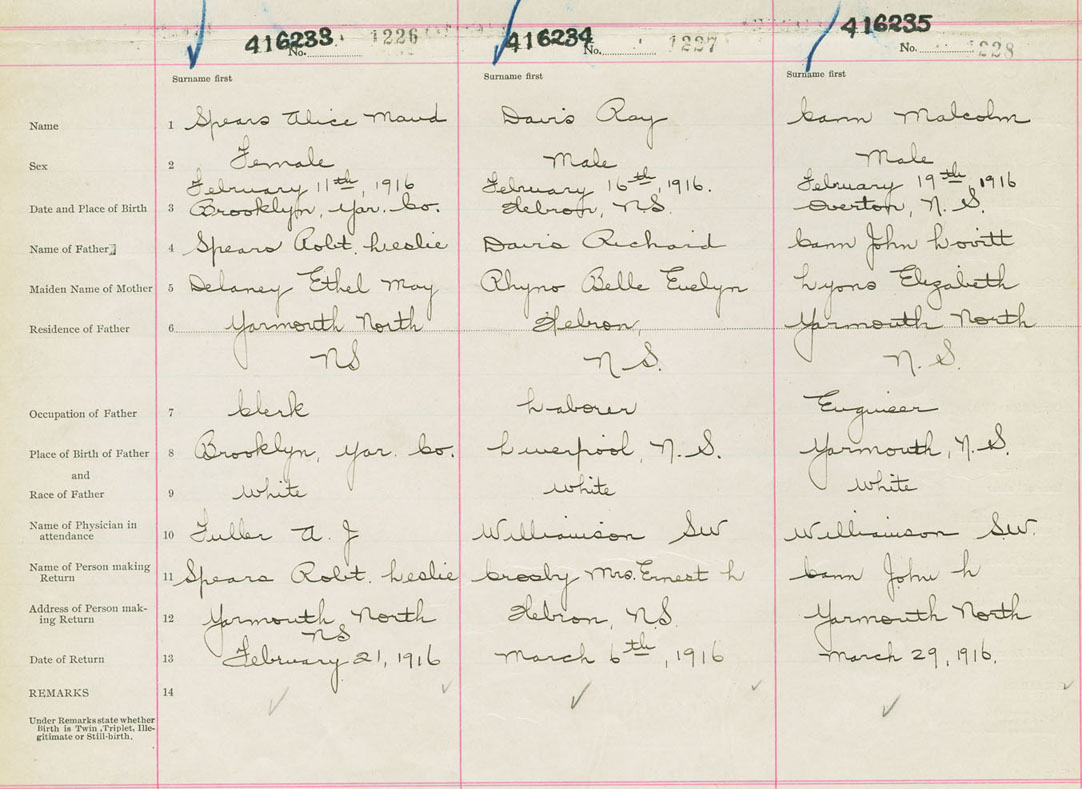 416233 No. 1226 416234 No. 1227 416235 No. 1228
Surname first Surname first Surname first
Name 1 Spears Alice Maud Davis Ray Cann Malcolm
Sex 2 Female Male Male
February 11th, 1916 February 16th, 1916. February 19th, 1916
Date and Place of Birth 3 Brooklyn, Yar. Co. Hebron, NS. Overton, N. S.
Name of Father 4 Spears Robt. Leslie Davis Richard Cann John Lovitt
Maiden Name of Mother 5 Delaney Ethel May Rhyno Belle Evelyn Lyons Elizabeth
Residence of Father 6 Yarmouth North Hebron, Yarmouth North
NS N S. N. S.
Occupation of Father 7 Clerk Laborer Engineer
Place of Birth of Father 8 Brooklyn, Yar. Co. Liverpool, N. S. Yarmouth, N. S.
and
Race of Father 9 White White White
Name of Physician in
attendance 10 Fuller A. J Williamson SW Williamson S.W.
Name of Person making
Return 11 Spears Robt. Leslie Crosby Mrs. Ernest L Cann John L
Address of Person mak-
ing Return 12 Yarmouth North Hebron, NS. Yarmouth North
NS
Date of Return 13 February 21, 1916 March 6th, 1916 March 29, 1916.
REMARKS 14
Under Remarks state whether
Birth is Twin, Triplet, Ille-
gitimate or Still-birth.